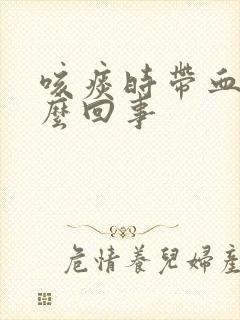 咳痰時帶血
麼回事
危情養兒婦產